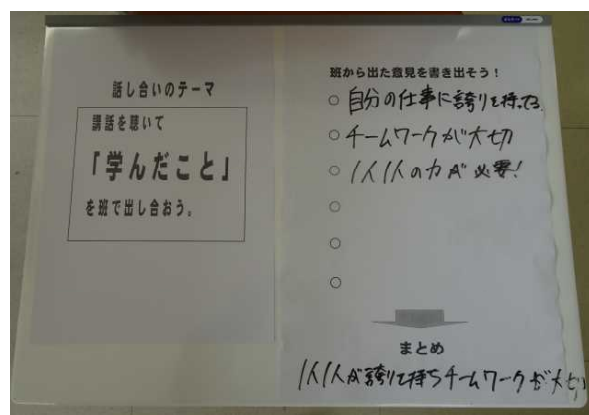 話し合いのテーマ
講話を聴いて
「学んだこと」
を班で出し合おう。
班から出た意見を書き出そう！
○ 自分の仕事に誇りを持ってる
○ チームワークが大切
○ 1人1人の力が必要!
○
○
○
まとめ
1人1人が誇りを持ちチームワークが大切